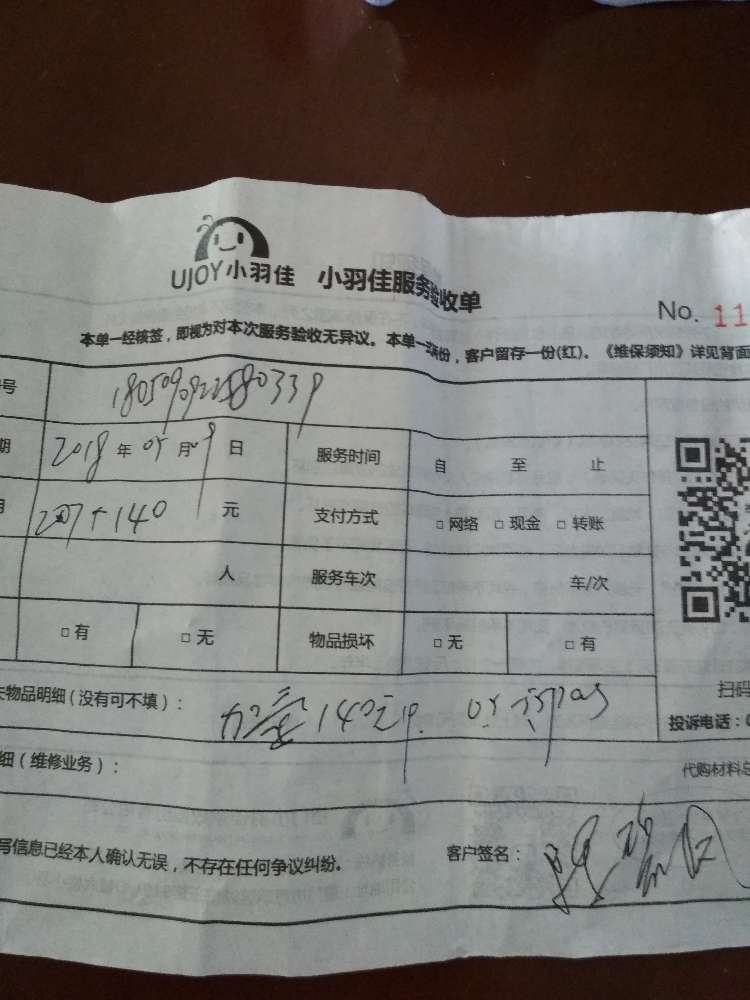 UJOY小羽佳 小羽佳服务验收单
No. 11
本单一经核签，即视为对本次服务验收无异议。本单一式两份，客户留存一份(红)。《维保须知》详见背面
号
期 2018 年 05 月 09 日 服务时间 自 至 止
207+140 元 支付方式 □ 网络 □ 现金 □ 转账
人 服务车次 车/次
□ 有 □ 无 物品损坏 □ 无 □ 有
物品明细 (没有可不填)：
140元
扫码
投诉电话：0
细 (维修业务)：
代购材料总
写信息已经本人确认无误，不存在任何争议纠纷。
客户签名：